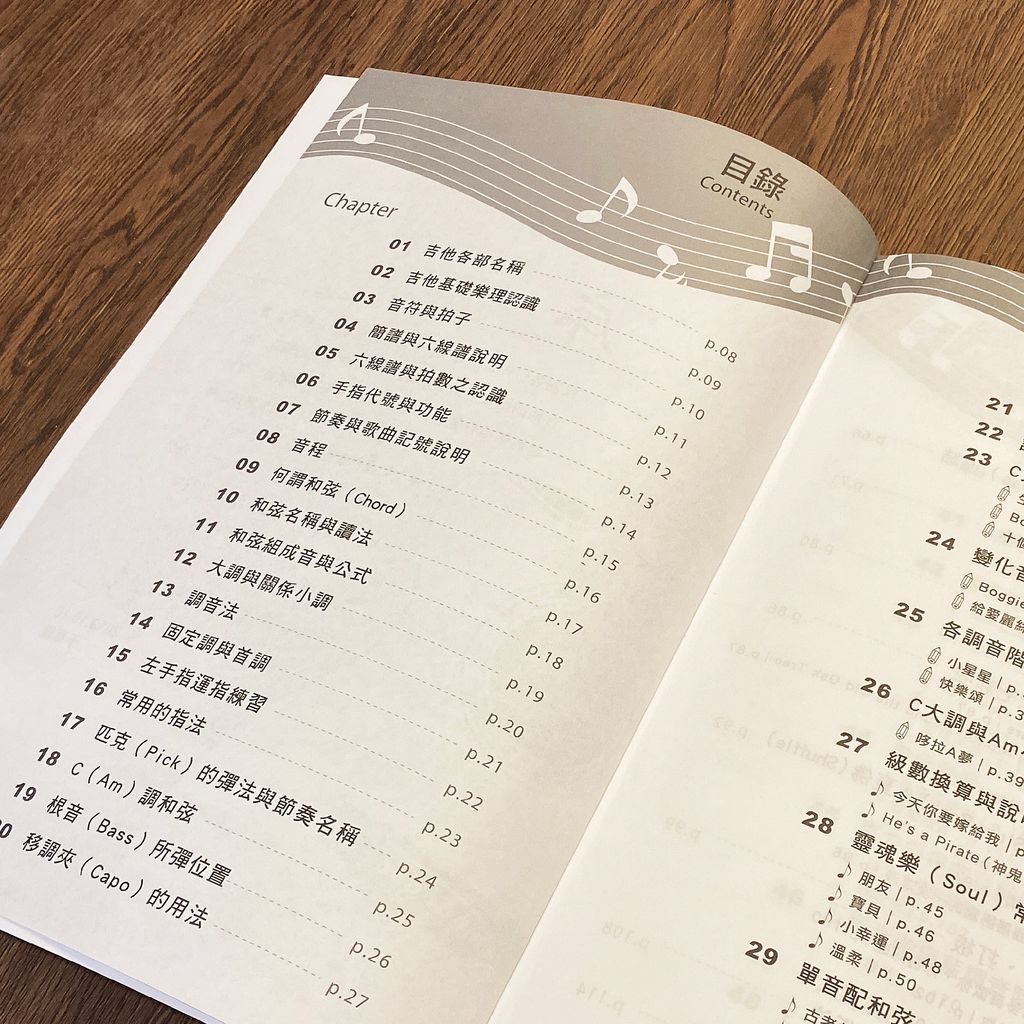 目錄
Contents
Chapter
01 吉他各部名稱 p.08
02 吉他基礎樂理認識 p.09
03 音符與拍子 p.10
04 簡譜與六線譜說明 p.11
05 六線譜與拍數之認識 p.12
06 手指代號與功能 p.13
07 節奏與歌曲記號說明 p.14
08 音程 p.15
09 何謂和弦（Chord） p.16
10 和弦名稱與讀法 p.17
11 和弦組成音與公式 p.18
12 大調與關係小調 p.19
13 調音法 p.20
14 固定調與首調 p.21
15 左手指運指練習 p.22
16 常用的指法 p.23
17 匹克（Pick）的彈法與節奏名稱 p.24
18 C（Am）調和弦 p.25
19 根音（Bass）所彈位置 p.26
移調夾（Capo）的用法 p.27
21
22
23 C
十個
24 變化音
Boggie
給愛麗絲
25 各調音階
小星星 | p.3
快樂頌 | p.3
26 C大調與Am
哆拉A夢 | p.39
27 級數換算與說
今天你要嫁給我 | p
He's a Pirate（神鬼
28 靈魂樂（Soul）常
朋友 | p.45
寶貝 | p.46
小幸運 | p.48
溫柔 | p.50
29 單音配和弦
古老